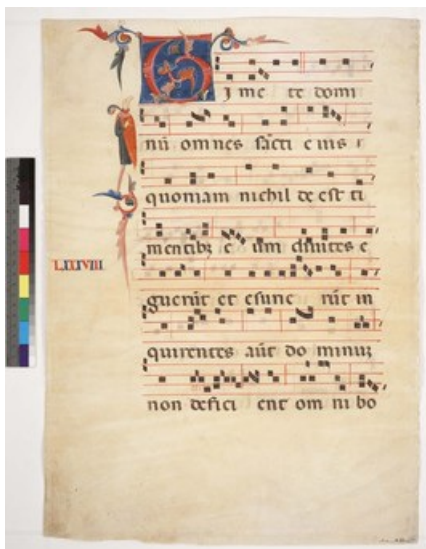 Ti me te domi
nū omnes sācti e ius
quoniam nichil de est ti
mentibz e um diuites e
guerūt et esurie rūt in
LXXVIII
quirentes aūt do minuz
non defici ent om ni bo